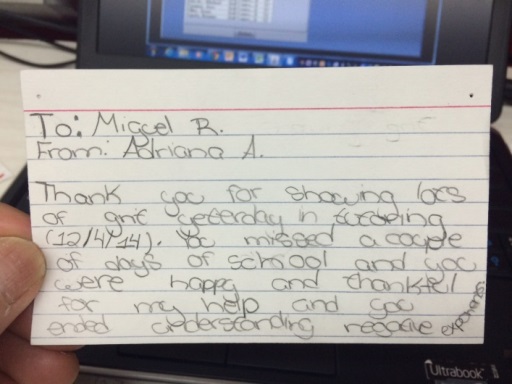 To: Miguel R.
From: Adriana A.
Thank you for showing lots
of grit yesterday in tutoring
(12/4/14). You missed a couple
of days of school and you
were happy and thankful
for my help and you
ended understanding negative exponents
Ultrabook